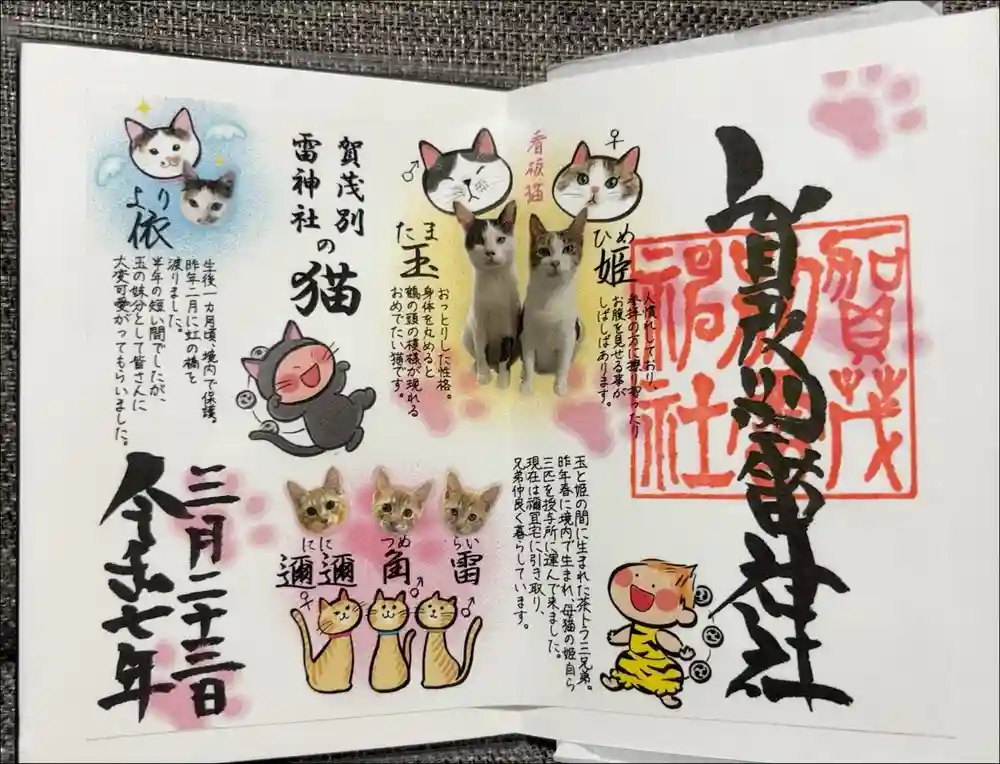 賀茂別雷神社
賀茂
別雷
神社
看板猫
♀
ひめ
姫
人慣れしており、
参拝の方に擦り寄ったり
お腹を見せる事が
しばしばあります。
♂
たま
玉
おっとりした性格。
身体を丸めると
鶴の頭の模様が現れる
おめでたい猫です。
玉と姫の間に生まれた茶トラ三兄弟。
昨年春に境内で生まれ、母猫の姫自ら
三匹を授与所に運んで来ました。
現在は禰宜宅に引き取り、
兄弟仲良く暮らしています。
賀茂別
雷神社
の猫
より
依
生後一カ月頃、境内で保護。
昨年二月に虹の橋を
渡りました。
半年の短い間でしたが、
玉の妹分として皆さんに
大変可愛がってもらいました。
らい
雷
♂
つめ
角
♂
にに
邇邇
♀
三月二十三日
令和七年